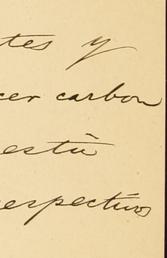 tes y
cer carbon
está
respectivos